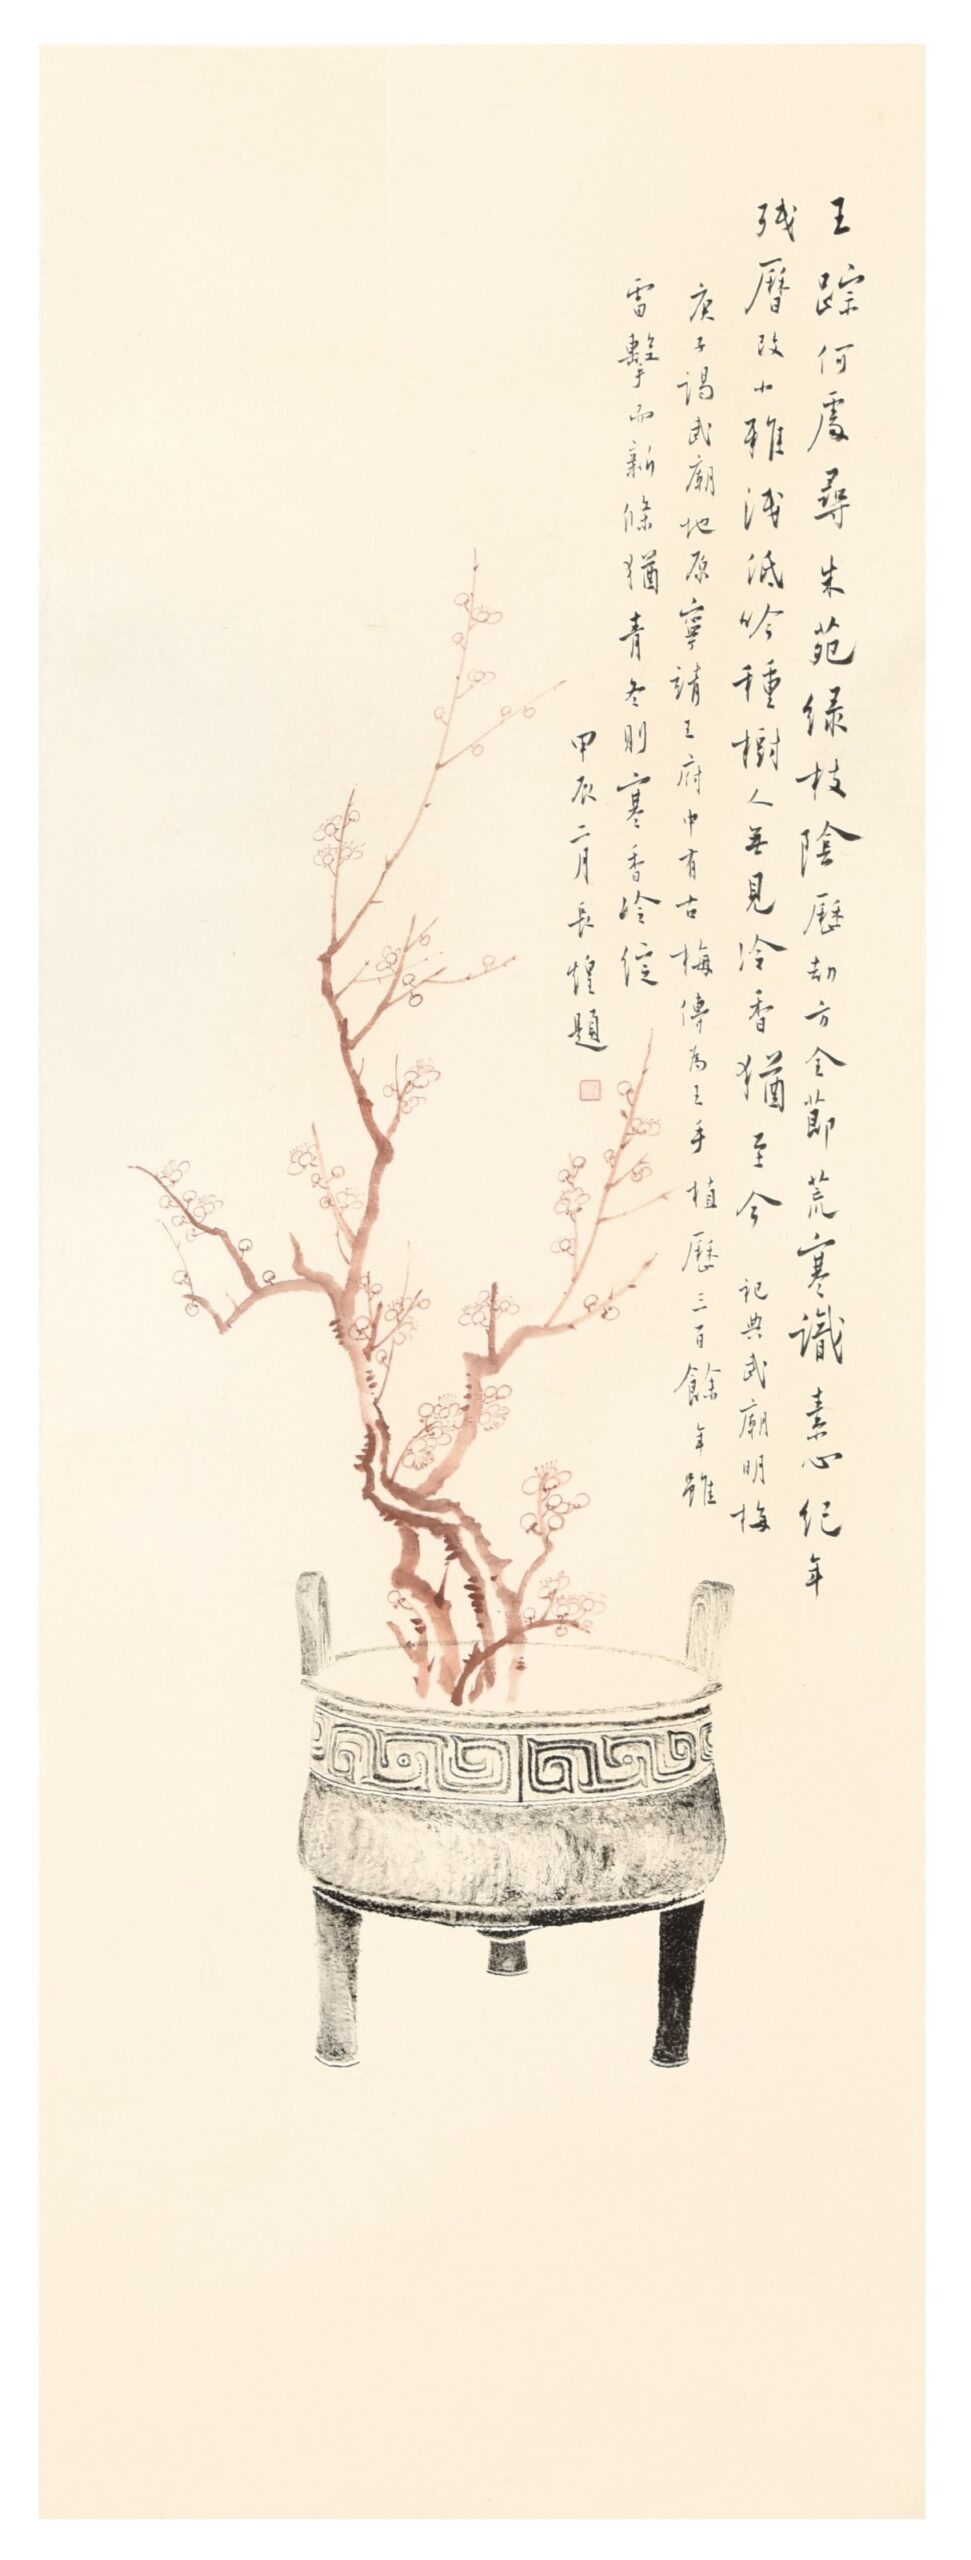 王踪何處尋朱苑绿枝陰歷劫方全節荒寒識素心纪年
残曆改小雅浅低吟種樹人無見冷香猶至今 記典武廟明梅
庚子謁武廟地原寧靖王府中有古梅傳為王手植歷三百餘年雖
雷擊而新條猶青冬則寒香冷綻
甲辰二月長煌題